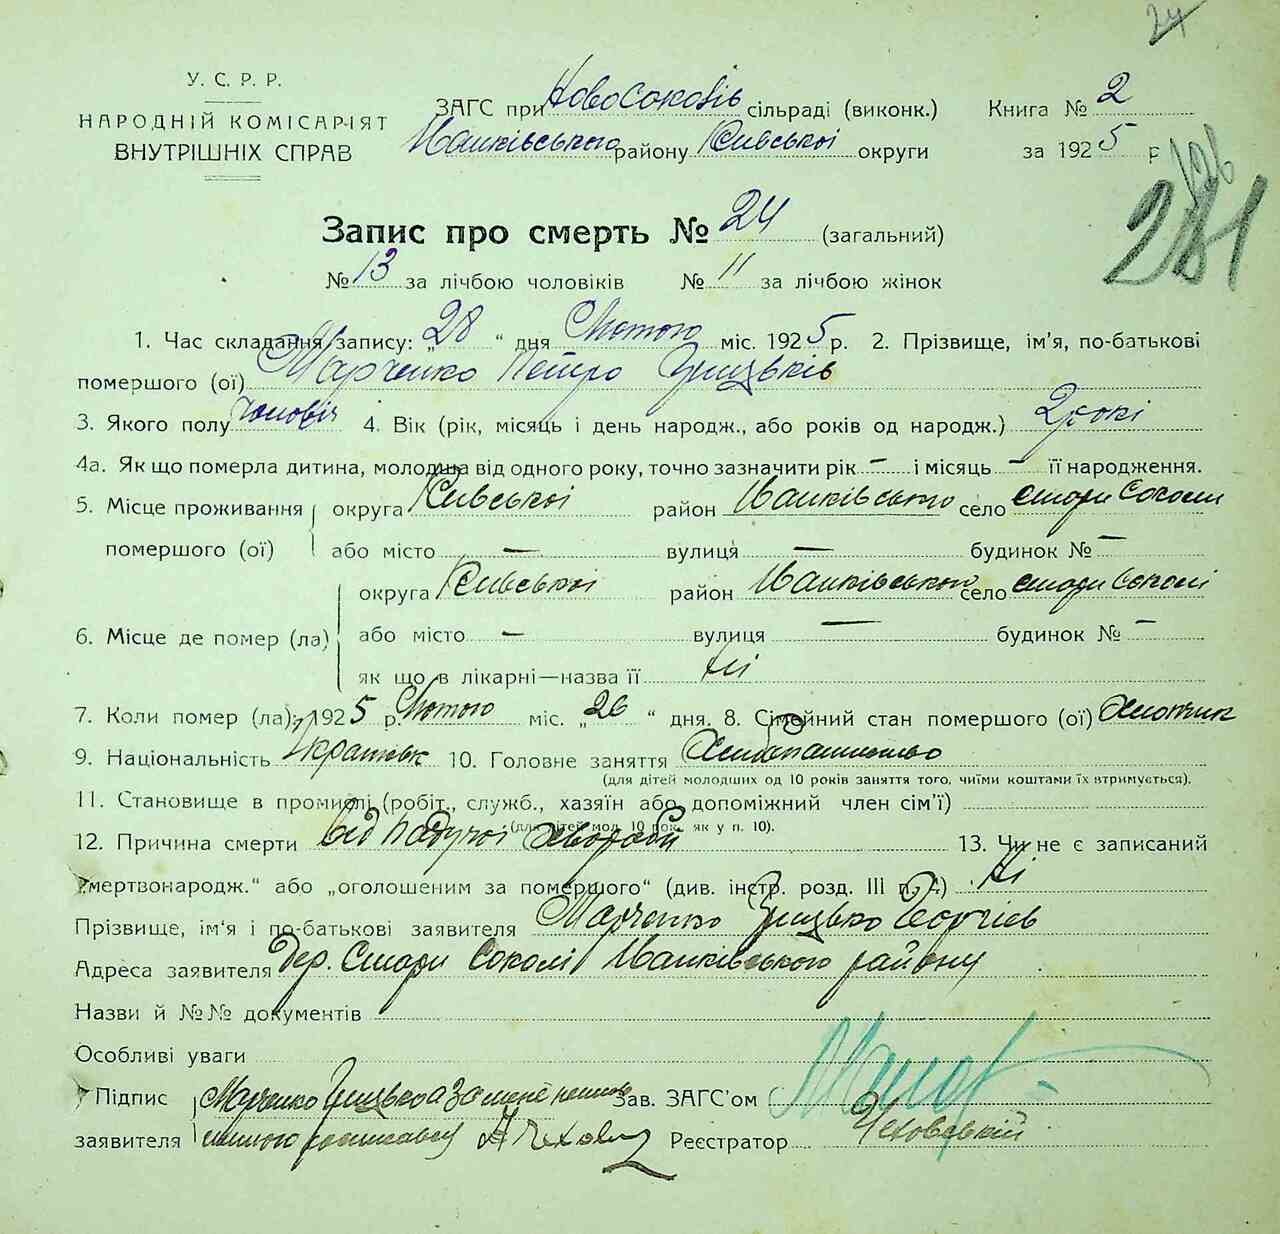 24
У. С. Р. Р.
НАРОДНІЙ КОМІСАРІЯТ
ВНУТРІШНІХ СПРАВ
ЗАГС при Новосоколів сільраді (виконк.)
Іванківського району Київської округи
Книга № 2
за 1925 р
126
281
Запис про смерть № 24 (загальний)
№ 13 за лічбою чоловіків № 11 за лічбою жінок
1. Час складання запису: „28 “ дня Лютого міс. 1925 р. 2. Прізвище, ім'я, по-батькові
помершого (ої) Марченко Петро Грицьків
3. Якого полу чоловіч 4. Вік (рік, місяць і день народж., або років од народж.) 2 рокі
4а. Як що померла дитина, молодша від одного року, точно зазначити рік – і місяць – її народження.
5. Місце проживання помершого (ої) округа Київської район Іванківського село стари Соколи
або місто — вулиця — будинок № –
6. Місце де помер (ла) округа Київської район Іванківського село стари Соколі
або місто – вулиця — будинок № –
як що в лікарні—назва її ні
7. Коли помер (ла): 1925 р. Лютого міс. „26 “ дня. 8. Сімейний стан помершого (ої) хлопчик
9. Національність 10. Головне заняття Хліборобство
(для дітей молодших од 10 років заняття того, чиїми коштами їх втримується).
11. Становище в промислі (робіт., служб., хазяїн або допоміжний член сім'ї)
(для дітей мол. 10 рок. як у п. 10).
12. Причина смерти від падучої хвороби 13. Чи не є записаний
„мертвонародж.“ або „оголошеним за помершого“ (див. інстр. розд. III п. ) ні
Прізвище, ім'я і по-батькові заявителя Марченко Грицько Георгіев
Адреса заявителя дер. Стари Соколі Іванківського району
Назви й №№ документів
Особливі уваги
Підпис заявителя Марченко Грицько а за мене
Зав. ЗАГС'ом
Реєстратор Чеховський